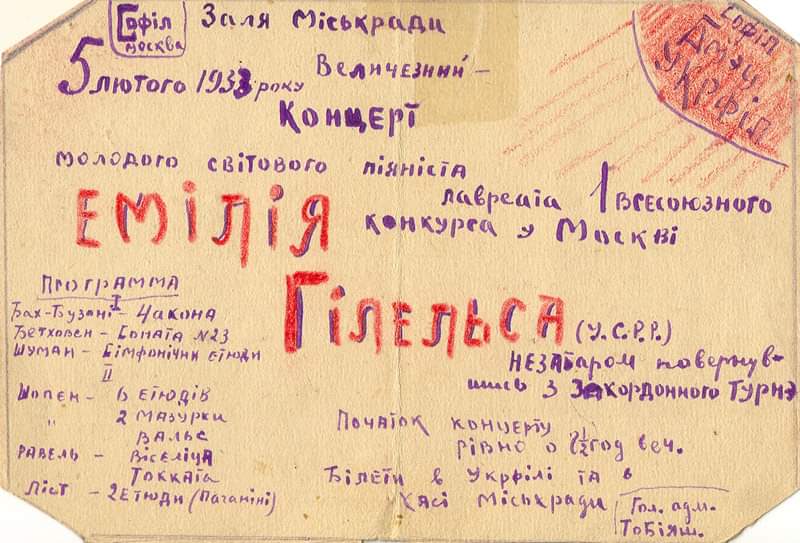 Софіл
москва
Заля Міськради
Софіл
Укрфіл
5 лютого 1933 року
Величезний -
Концерт
молодого світового піяніста
лавреата 1 всесоюзного
конкурса у Москві
Емілія
Гілельса (У.С.Р.Р.)
незабаром повернув-
шись з Закордонного Турнэ
Программа
I
Бах-Бузоні - Чакона
Бетховен - Соната №23
Шуман - Сімфонічни етюди
II
Шопен - 6 етюдів
" 2 мазурки
вальс
Равель - Віселіца
Токката
Ліст - 2 етюди (Паганіні)
Початок концерту
рівно о 8½ год веч.
Білети в Укрфілі та в
Касі Міськради
Гол. адм.
Тобіяш.